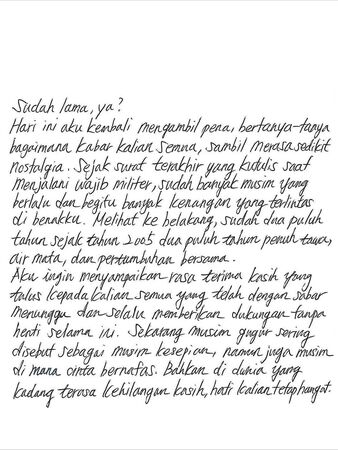 Sudah lama, ya?
Hari ini aku kembali mengambil pena, bertanya-tanya
bagaimana kabar kalian semua, sambil merasa sedikit
nostalgia. Sejak surat terakhir yang kutulis saat
menjalani wajib militer, sudah banyak musim yang
berlalu dan begitu banyak kenangan yang terlintas
di benakku. Melihat ke belakang, sudah dua puluh
tahun sejak tahun 2005 dua puluh tahun penuh tawa,
air mata, dan pertumbuhan bersama.
Aku ingin menyampaikan rasa terima kasih yang
tulus kepada kalian semua yang telah dengan sabar
menunggu dan selalu memberikan dukungan tanpa
henti selama ini. Sekarang musim gugur sering
disebut sebagai musim kesepian, namun juga musim
di mana cinta bernafas. Bahkan di dunia yang
kadang terasa kehilangan kasih, hati kalian tetap hangat.